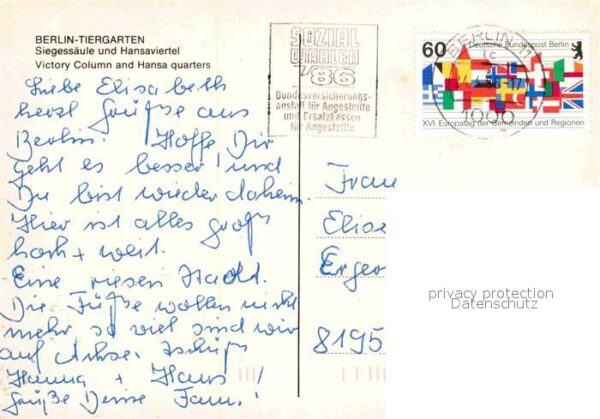 BERLIN-TIERGARTEN
Siegessäule und Hansaviertel
Victory Column and Hansa quarters
Liebe Elisabeth
herzl. Grüße aus
Berlin. Hoffe Dir
geht es besser und
Du bist wieder daheim.
Hier ist alles groß
hoch + weit.
Eine riesen Stadt.
Die Füße wollen nicht
mehr so viel sind wir
auf Achse.
Hanna + Hans!
Grüße Deine Fam.!
SOZIAL
WAHLEN
'86
Bundesversicherungs-
anstalt für Angestellte
und Ersatzkassen
für Angestellte
BERLIN 11
1000
60 Deutsche Bundespost Berlin
XVI. Europatag der Gemeinden und Regionen
Frau
Elise
8195
privacy protection
Datenschutz